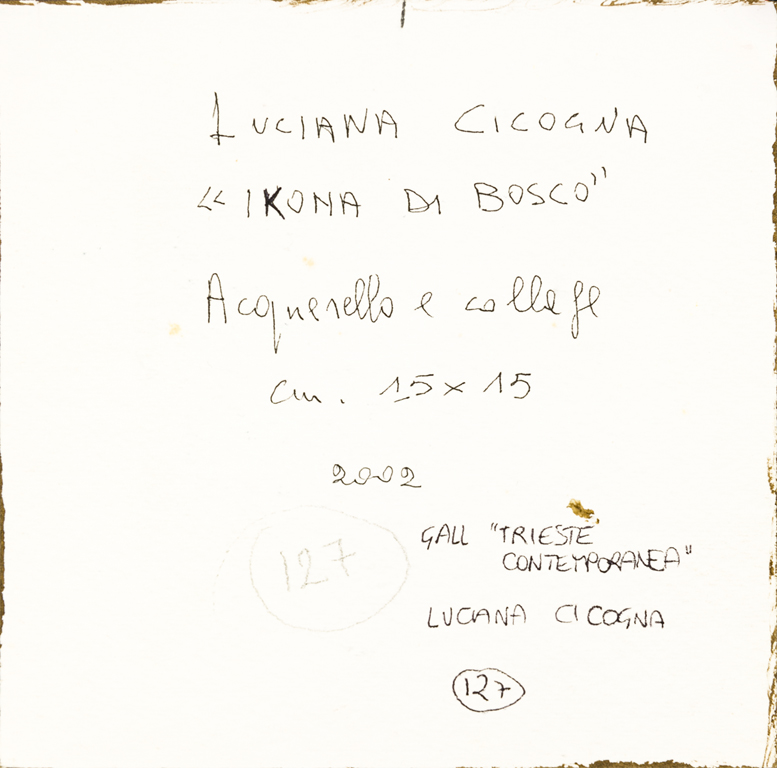 LUCIANA CICOGNA
"IKONA DI BOSCO"
Acquerello e collage
cm. 15 x 15
2002
127
GALL "TRIESTE
CONTEMPORANEA"
LUCIANA CICOGNA
127